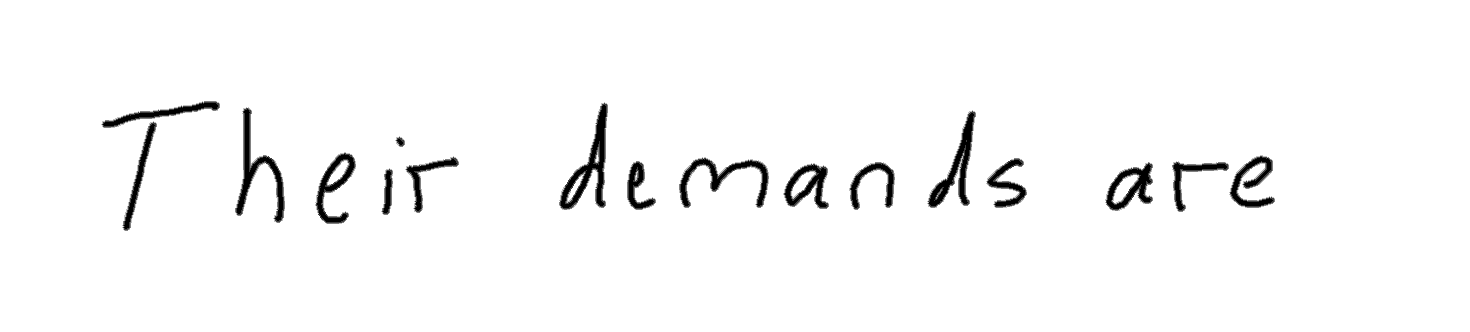 Their demands are